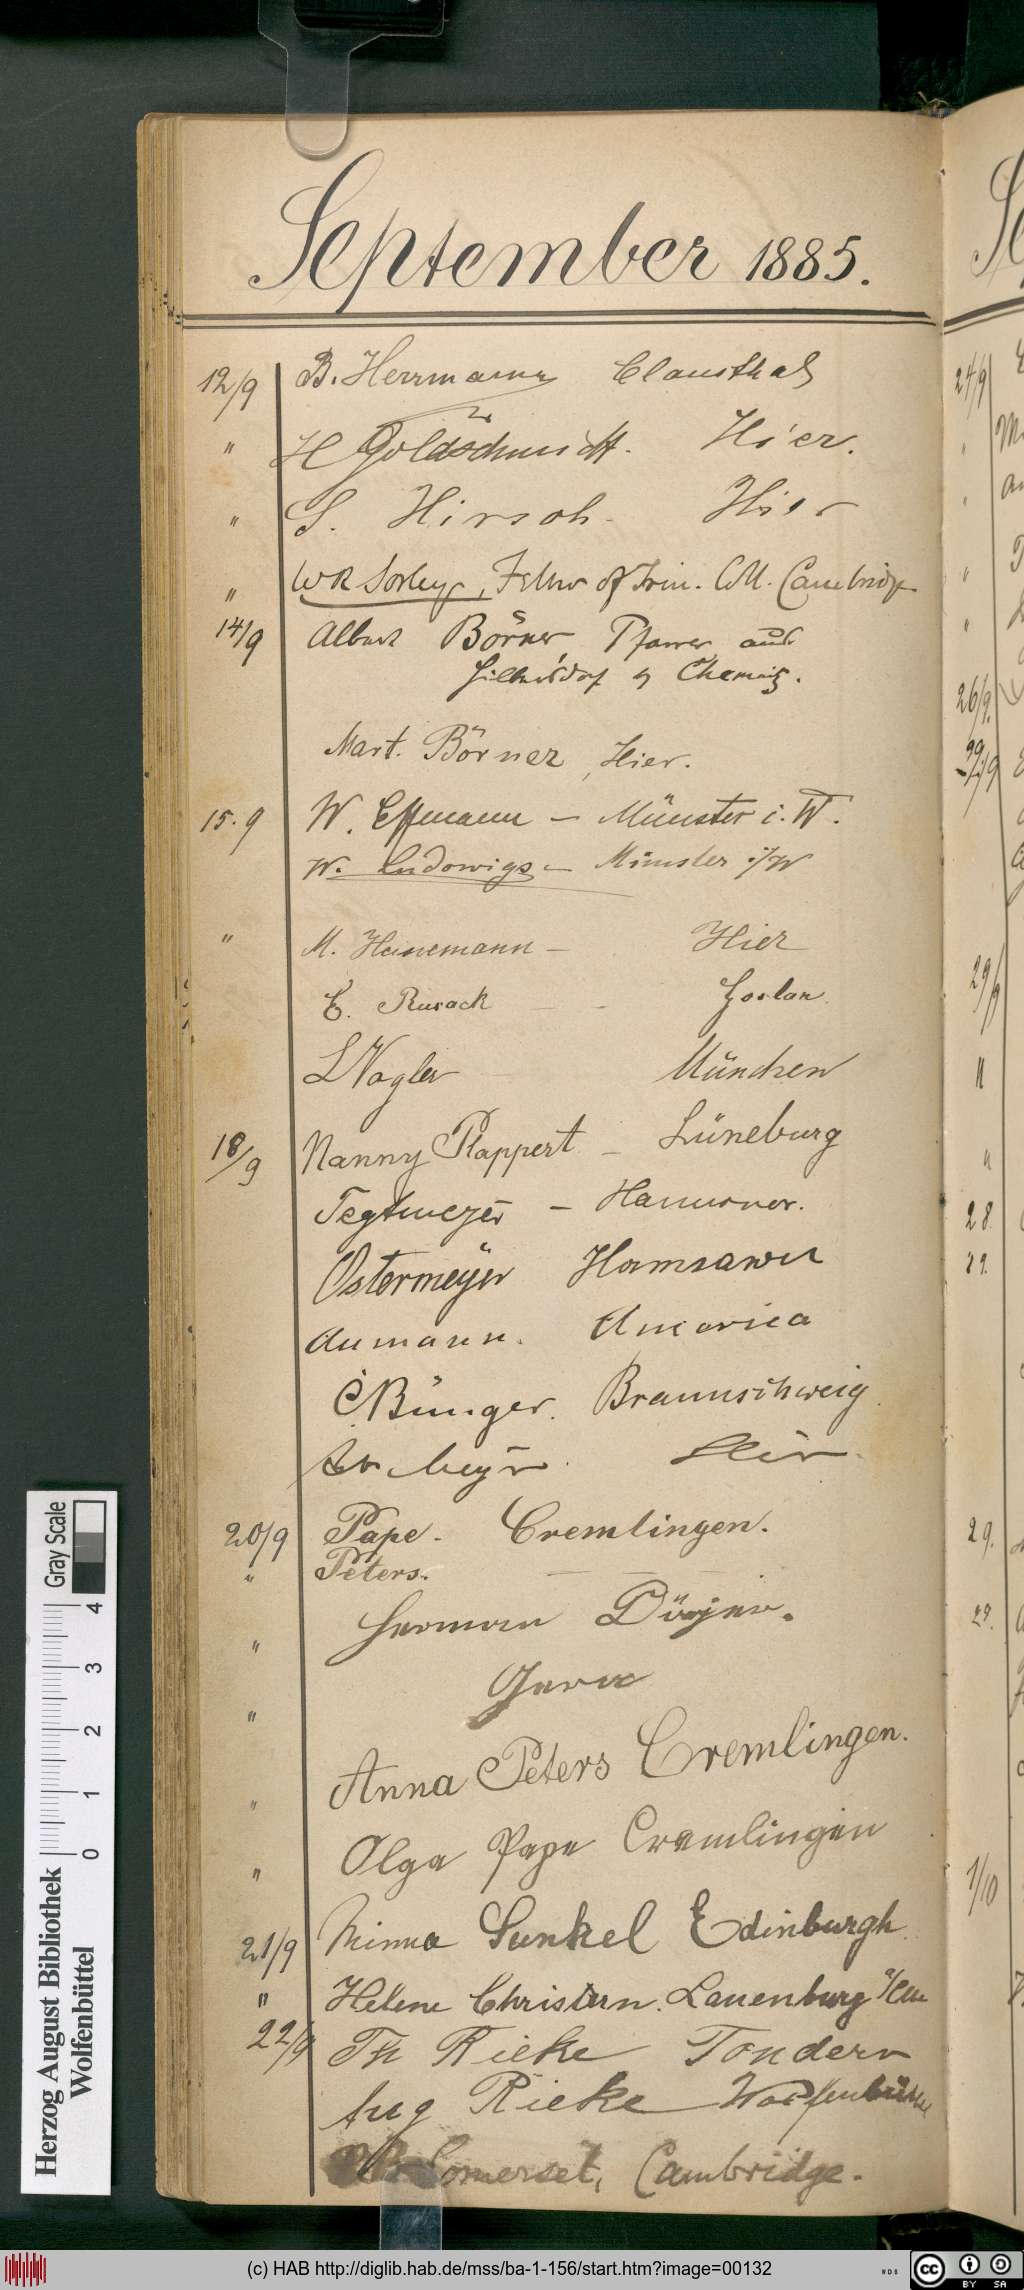 September 1885.
12/9 B. Herrmann Clausthal
" H Goldschmidt. Hier.
" S. Hirsch. Hier
" W R Sorley, Fellow of Trin. Coll. Cambridge
14/9 Albert Börner, Pfarrer aus
Hilbersdorf b Chemnitz.
Mart. Börner, Hier.
15.9 W. Effmann – Münster i. W.
W. Ludowigs – Münster i/W
" M. Hanemann – Hier
E. Rusack – – Goslar
L Vogler München
18/9 Nanny Plappert – Lüneburg
Tegtmeyer – Hannover.
Ostermeyer
Aumann. America
C Bünger. Braunschweig
Meyer. Hier
20/9 Pape. Cremlingen.
" Peters. — — —
" Herman
"
" Anna Peters Cremlingen.
" Olga Pape Cremlingen
21/9 Minna Sunkel Edinburgh.
" Helene Christern. Lauenburg a/Elbe
22/9 Th Rieke Tondern
Aug Rieke Wolfenbüttel
Somerset, Cambridge.
24/9
26/9.
29/9
"
"
28
29.
29.
29.
1/10
Gray Scale
0 1 2 3 4
Herzog August Bibliothek
Wolfenbüttel
(c) HAB http://diglib.hab.de/mss/ba-1-156/start.htm?image=00132
WDB
cc BY SA